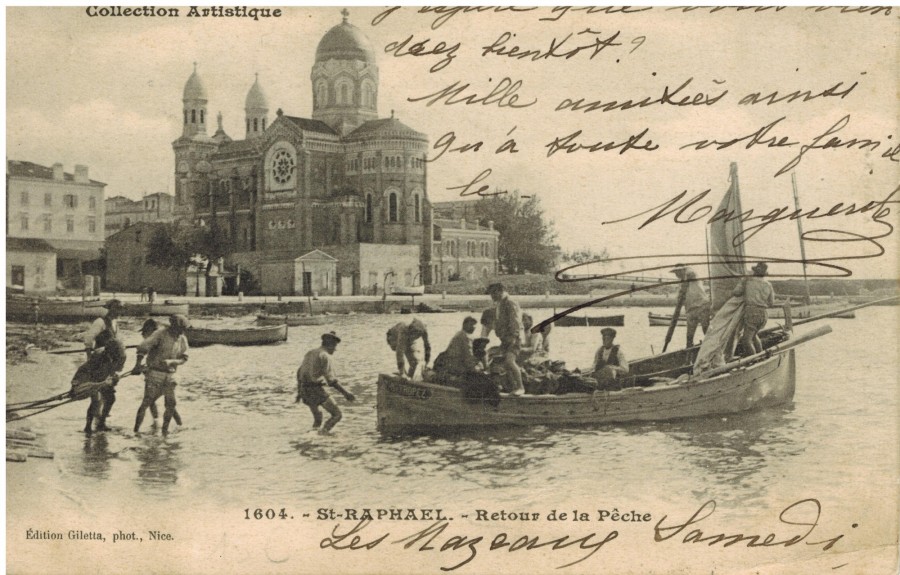 Collection Artistique
J'espère que vous vien
drez bientôt?
Mille amitiés ainsi
qu'à toute votre famil
le
Marguerite
1604. - St-RAPHAEL. - Retour de la Pêche
Édition Giletta, phot., Nice.
Les Mazeaux Samedi